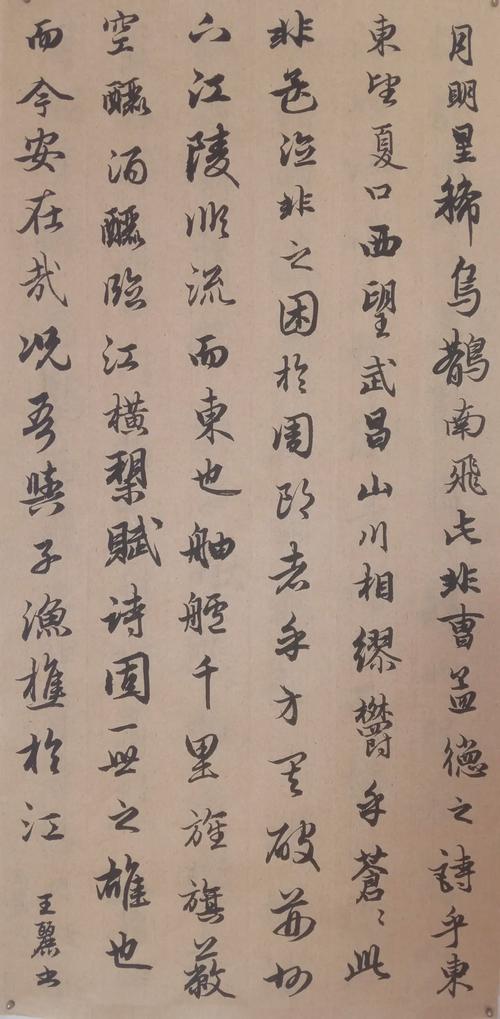 月明星稀烏鵲南飛此非曹孟德之詩乎東
東望夏口西望武昌山川相繆鬱乎蒼〻此
非孟德非之困於周郎者乎方其破荊州
下江陵順流而東也舳艫千里旌旗蔽
空釃酒釃臨江橫槊賦詩固一世之雄也
而今安在哉況吾與子漁樵於江
王麗书